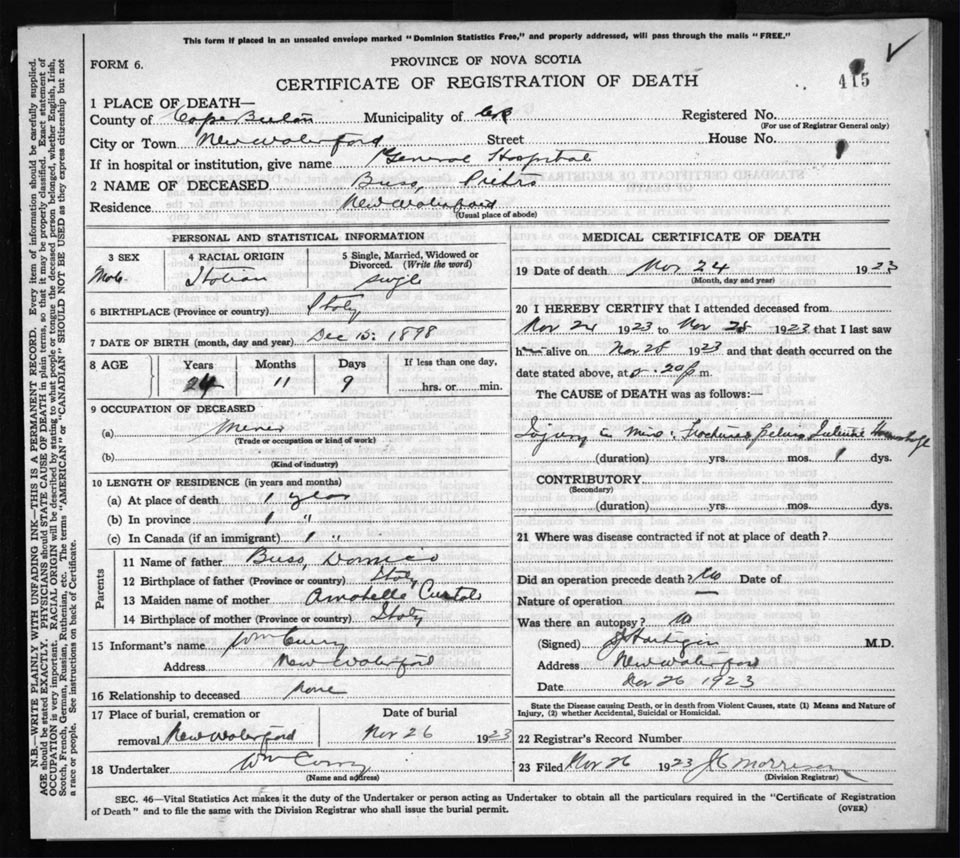 This form if placed in an unsealed envelope marked "Dominion Statistics Free," and properly addressed, will pass through the mails "FREE."
FORM 6.
PROVINCE OF NOVA SCOTIA
415
CERTIFICATE OF REGISTRATION OF DEATH
1 PLACE OF DEATH—
County of Cape Breton Municipality of Registered No.
(For use of Registrar General only)
City or Town New Waterford Street House No.
If in hospital or institution, give name General Hospital
2 NAME OF DECEASED Buss, Pietro
Residence New Waterford
(Usual place of abode)
PERSONAL AND STATISTICAL INFORMATION
3 SEX 4 RACIAL ORIGIN 5 Single, Married, Widowed or Divorced. (Write the word)
Male Italian single
6 BIRTHPLACE (Province or country) Italy
7 DATE OF BIRTH (month, day and year) Dec 15: 1898
8 AGE Years Months Days If less than one day,
24 11 9 hrs. or min.
9 OCCUPATION OF DECEASED
(a) Miner
(Trade or occupation or kind of work)
(b)
(Kind of industry)
10 LENGTH OF RESIDENCE (in years and months)
(a) At place of death 1 year
(b) In province 1 "
(c) In Canada (if an immigrant) 1 "
Parents
11 Name of father Buss, Domico
12 Birthplace of father (Province or country) Italy
13 Maiden name of mother
14 Birthplace of mother (Province or country) Italy
15 Informant's name Wm Curry
Address New Waterford
16 Relationship to deceased none
17 Place of burial, cremation or Date of burial
removal New Waterford Nov 26 1923
18 Undertaker Wm Curry
(Name and address)
MEDICAL CERTIFICATE OF DEATH
19 Date of death Nov 24 1923
(Month, day and year)
20 I HEREBY CERTIFY that I attended deceased from
Nov 24 1923 to Nov 1923 that I last saw
him alive on Nov 1923 and that death occurred on the
date stated above, at 20 p m.
The CAUSE of DEATH was as follows:—
Injury in Mine: Fractured pelvis
(duration) yrs. mos. 1 dys.
CONTRIBUTORY
(Secondary)
(duration) yrs. mos. dys.
21 Where was disease contracted if not at place of death?
Did an operation precede death? No Date of
Nature of operation —
Was there an autopsy? No
(Signed) M.D.
Address New Waterford
Date Nov 26 1923
State the Disease causing Death, or in death from Violent Causes, state (1) Means and Nature of
Injury, (2) whether Accidental, Suicidal or Homicidal.
22 Registrar's Record Number
23 Filed Nov 26 1923 J C Morrison
(Division Registrar)
SEC. 46—Vital Statistics Act makes it the duty of the Undertaker or person acting as Undertaker to obtain all the particulars required in the "Certificate of Registration
of Death" and to file the same with the Division Registrar who shall issue the burial permit.
(OVER)
N.B.—WRITE PLAINLY WITH UNFADING INK—THIS IS A PERMANENT RECORD. Every item of information should be carefully supplied.
AGE should be stated EXACTLY. PHYSICIANS should STATE CAUSE OF DEATH in plain terms, so that it may be properly classified. Exact statement of
OCCUPATION is very important. RACIAL ORIGIN will be described by stating to what people or tongue the deceased person belonged, whether English, Irish,
Scotch, French, German, Russian, Ruthenian, etc. The terms "AMERICAN" or "CANADIAN" SHOULD NOT BE USED as they express citizenship but not
a race or people. See instructions on back of Certificate.